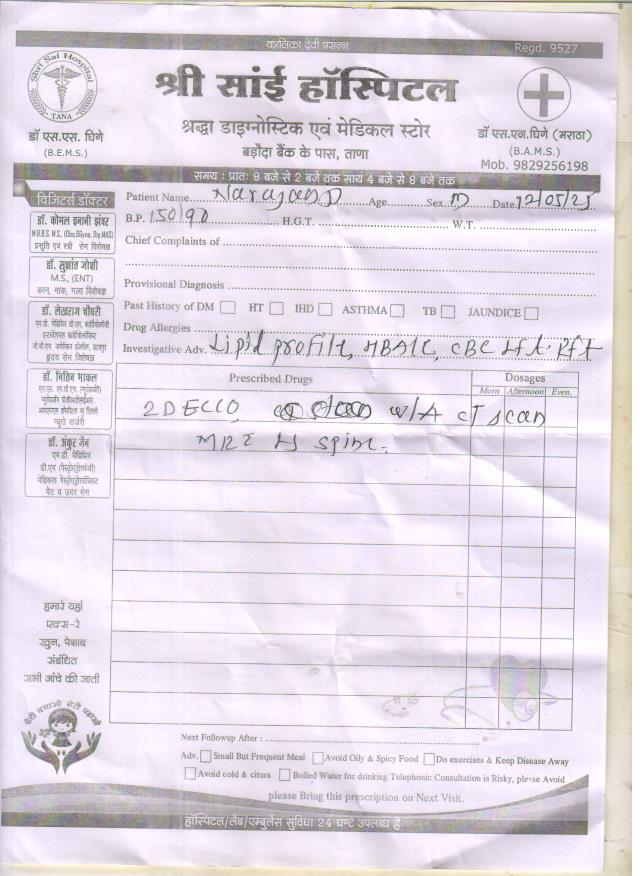 कालिका देवी प्रसन्न
Regd. 9527
Shri Sai Hospital
TANA
श्री सांई हॉस्पिटल
श्रद्धा डाइग्नोस्टिक एवं मेडिकल स्टोर
बड़ौदा बैंक के पास, ताणा
डॉ एस.एस. घिगे
(B.E.M.S.)
डॉ एस.एन.घिगे (मराठा)
(B.A.M.S.)
Mob. 9829256198
समय : प्रातः 8 बजे से 2 बजे तक सायं 4 बजे से 8 बजे तक
विजिटर्स डॉक्टर
डॉ. कोमल इनानी झंवर
M.B.B.S. M.S., (Obs.&Gyne, Dip.MAS)
प्रसूति एवं स्त्री रोग विशेषज्ञ
डॉ. सुशांत जोशी
M.S., (ENT)
कान, नाक, गला विशेषज्ञ
डॉ. लेखराज चौधरी
हृदय रोग विशेषज्ञ
डॉ. नितिन भाकल
न्यूरो सर्जरी
डॉ. अंकुर जैन
एम.डी. मेडिसिन
पेट व उदर रोग
हमारे यहां
एक्स-रे
खून, पेशाब
संबंधित
सभी जांचे की जाती
बेटी बचाओ बेटी पढ़ाओ
Patient Name Age Sex M Date 12/05/25
B.P. 150/90 H.G.T. W.T.
Chief Complaints of
Provisional Diagnosis
Past History of DM HT IHD ASTHMA TB JAUNDICE
Drug Allergies
Investigative Adv. Lipid profile, HBA1C, CBC Lft Rft
Prescribed Drugs Dosages
Morn Afternoon Even.
2D ECCO w/A CT scan
LS spine
Next Followup After :
Adv. Small But Frequent Meal Avoid Oily & Spicy Food Do exercises & Keep Disease Away
Avoid cold & citurs Boiled Water for drinking Telephonic Consultation is Risky, please Avoid
please Bring this prescription on Next Visit.
हॉस्पिटल/लेब/एम्बुलेंस सुविधा 24 घण्टे उपलब्ध है